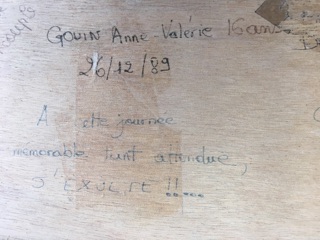 GOUIN Anne-Valérie 16 ans
26/12/89
A cette journée
mémorable tant attendue,
J'EXULTE !!....